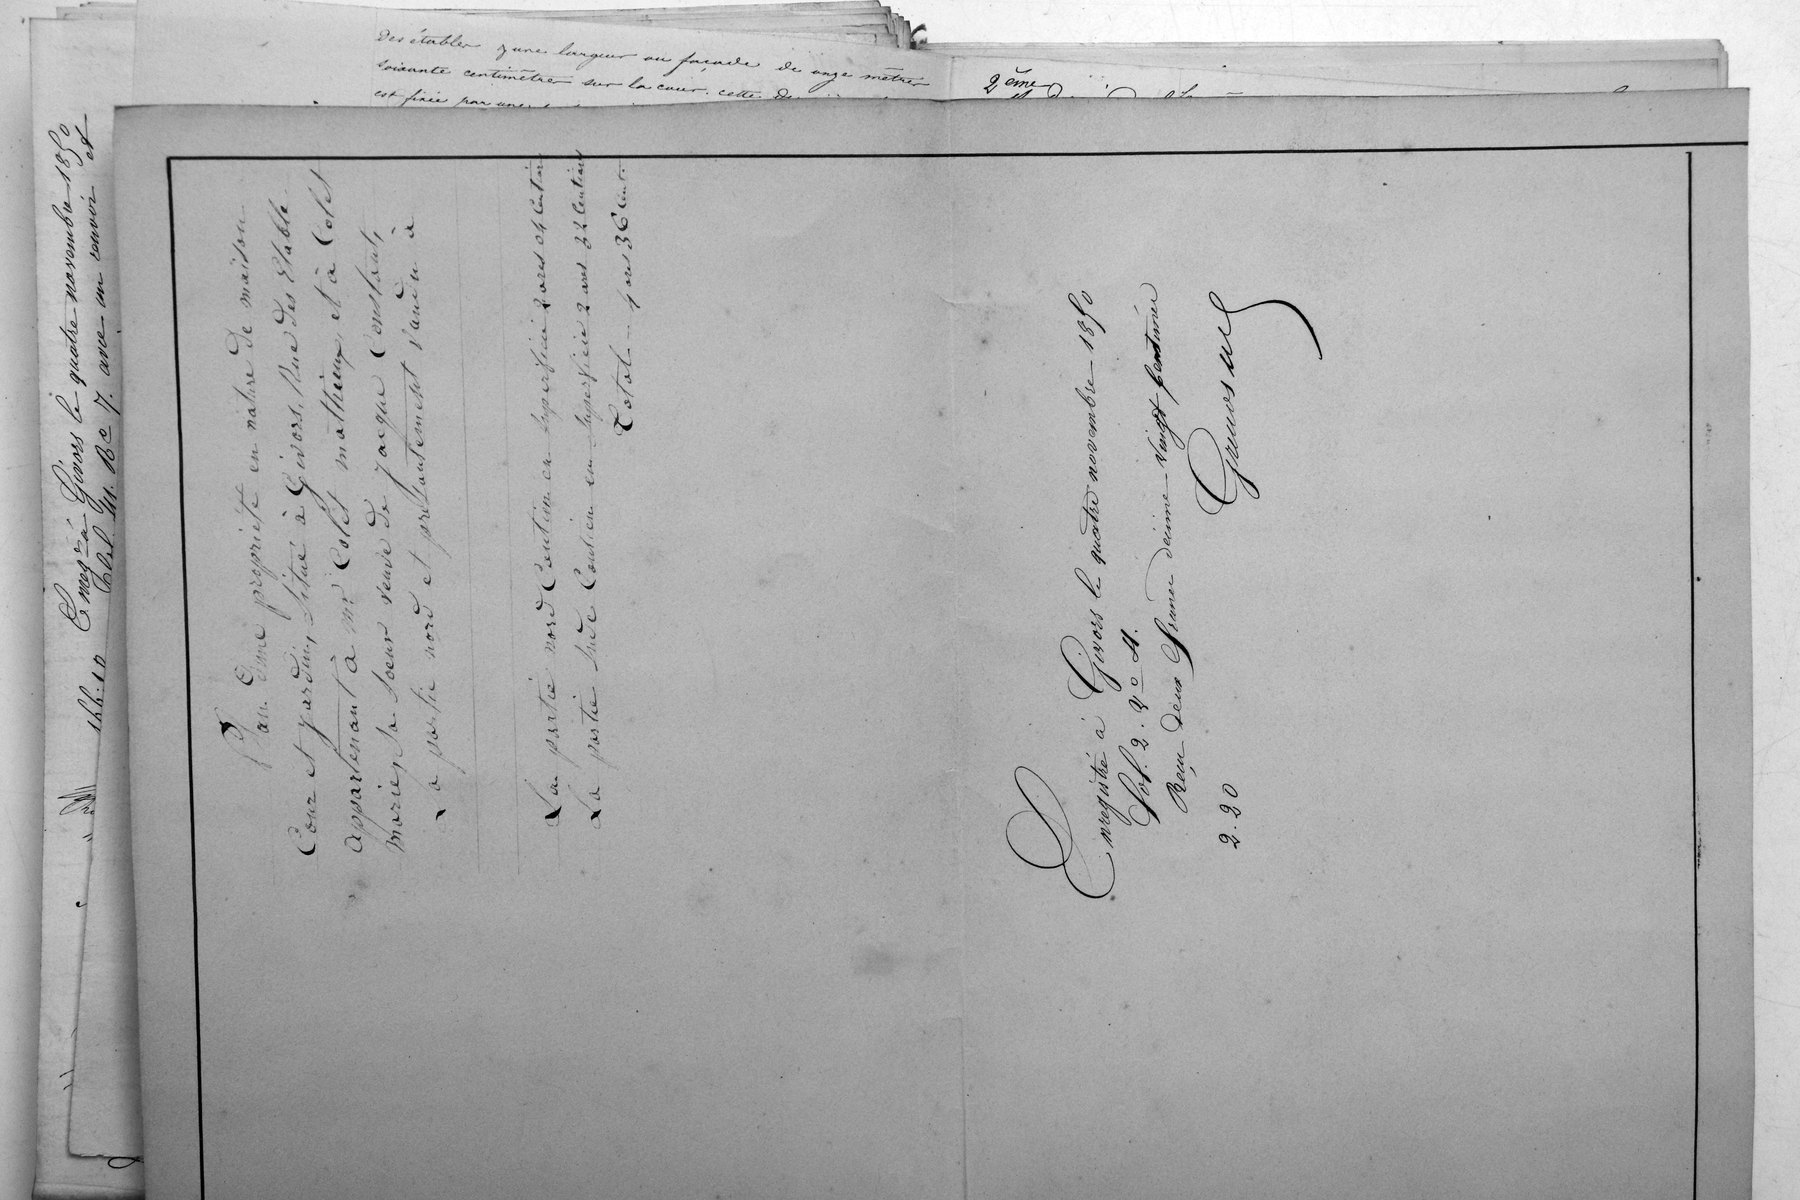 des étables, & une largeur ou façade de onze mètres
soixante centimètres sur la cour. cette
est fixée par une
2ème
Enregré à Givors le quatre novembre 1850
et
fol. 41. Rc 7. avec un renvoi
166.10
Plan d'une propriété en nature de maison
Cour et jardin, situé à Givors, Rue des Etable
appartenant à mr Colet mathieu, et à Colet
marie, sa soeur veuve de jacque Constant,
La partie nord et présentement vandu à
La partie nord Contien en superficie 2 ares 04 Centiare
La partie sude Contien en superficie 2 ares 32 Centiare
Total 4 ares 36 Cent.
Enregistré à Givors le quatre novembre 1850
Fol. 2. Vo 4.
Reçu deux francs décime vingt centimes
2.20